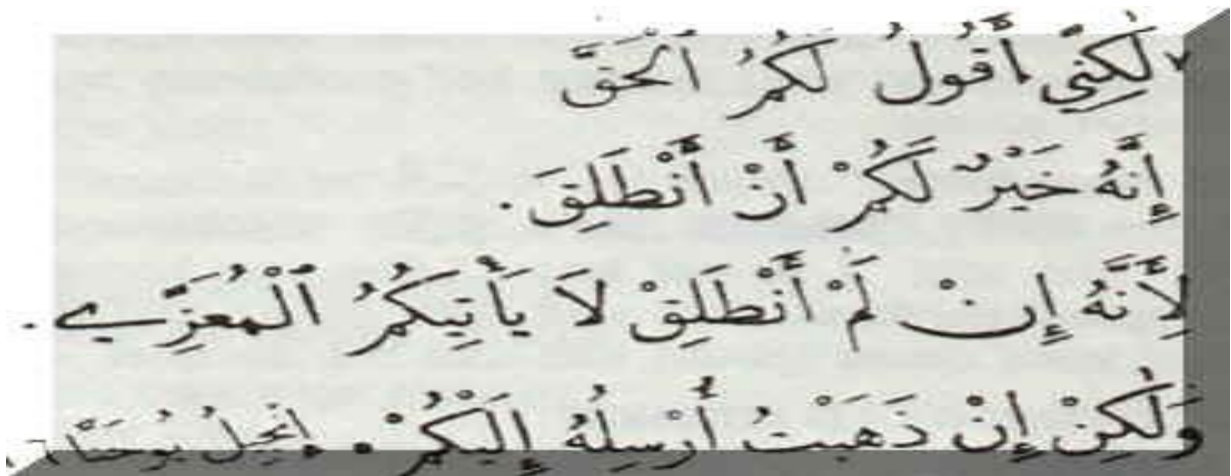 ٧لٰكِنِّي أَقُولُ لَكُمُ ٱلْحَقَّ
إِنَّهُ خَيْرٌ لَكُمْ أَنْ أَنْطَلِقَ.
لِأَنَّهُ إِنْ لَمْ أَنْطَلِقْ لَا يَأْتِيكُمُ ٱلْمُعَزِّي.
وَلٰكِنْ إِنْ ذَهَبْتُ أُرْسِلُهُ إِلَيْكُمْ. إنجيل يوحنا